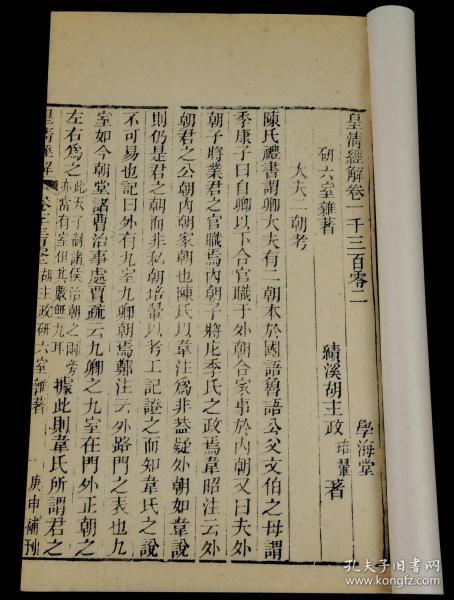 皇清經解卷一千三百零二
學海堂
研六室雜著
績溪胡主政培翬著
大夫二朝考
陳氏禮書謂卿大夫有二朝本於國語魯語公父文伯之母謂
季康子曰自卿以下合官職于外朝合家事於內朝又曰夫外
朝子將業君之官職焉內朝子將庀季氏之政焉韋昭注云外
朝君之公朝內朝家朝也陳氏以韋注爲非葢疑外朝如韋說
則仍是君之朝而非私朝培翬以考工記證之而知韋氏之說
不可易也記曰外有九室九卿朝焉鄭注云外路門之表也九
室如今朝堂諸曹治事處賈疏云九卿之九室在門外正朝之
左右爲之此天子制諸侯治朝之兩旁亦當有室但其數無九耳據此則韋氏所謂君之
皇清經解
卷千三百零二
胡主政研六室雜著
一
庚申補刊
孔夫子旧书网
www.kongfz.com